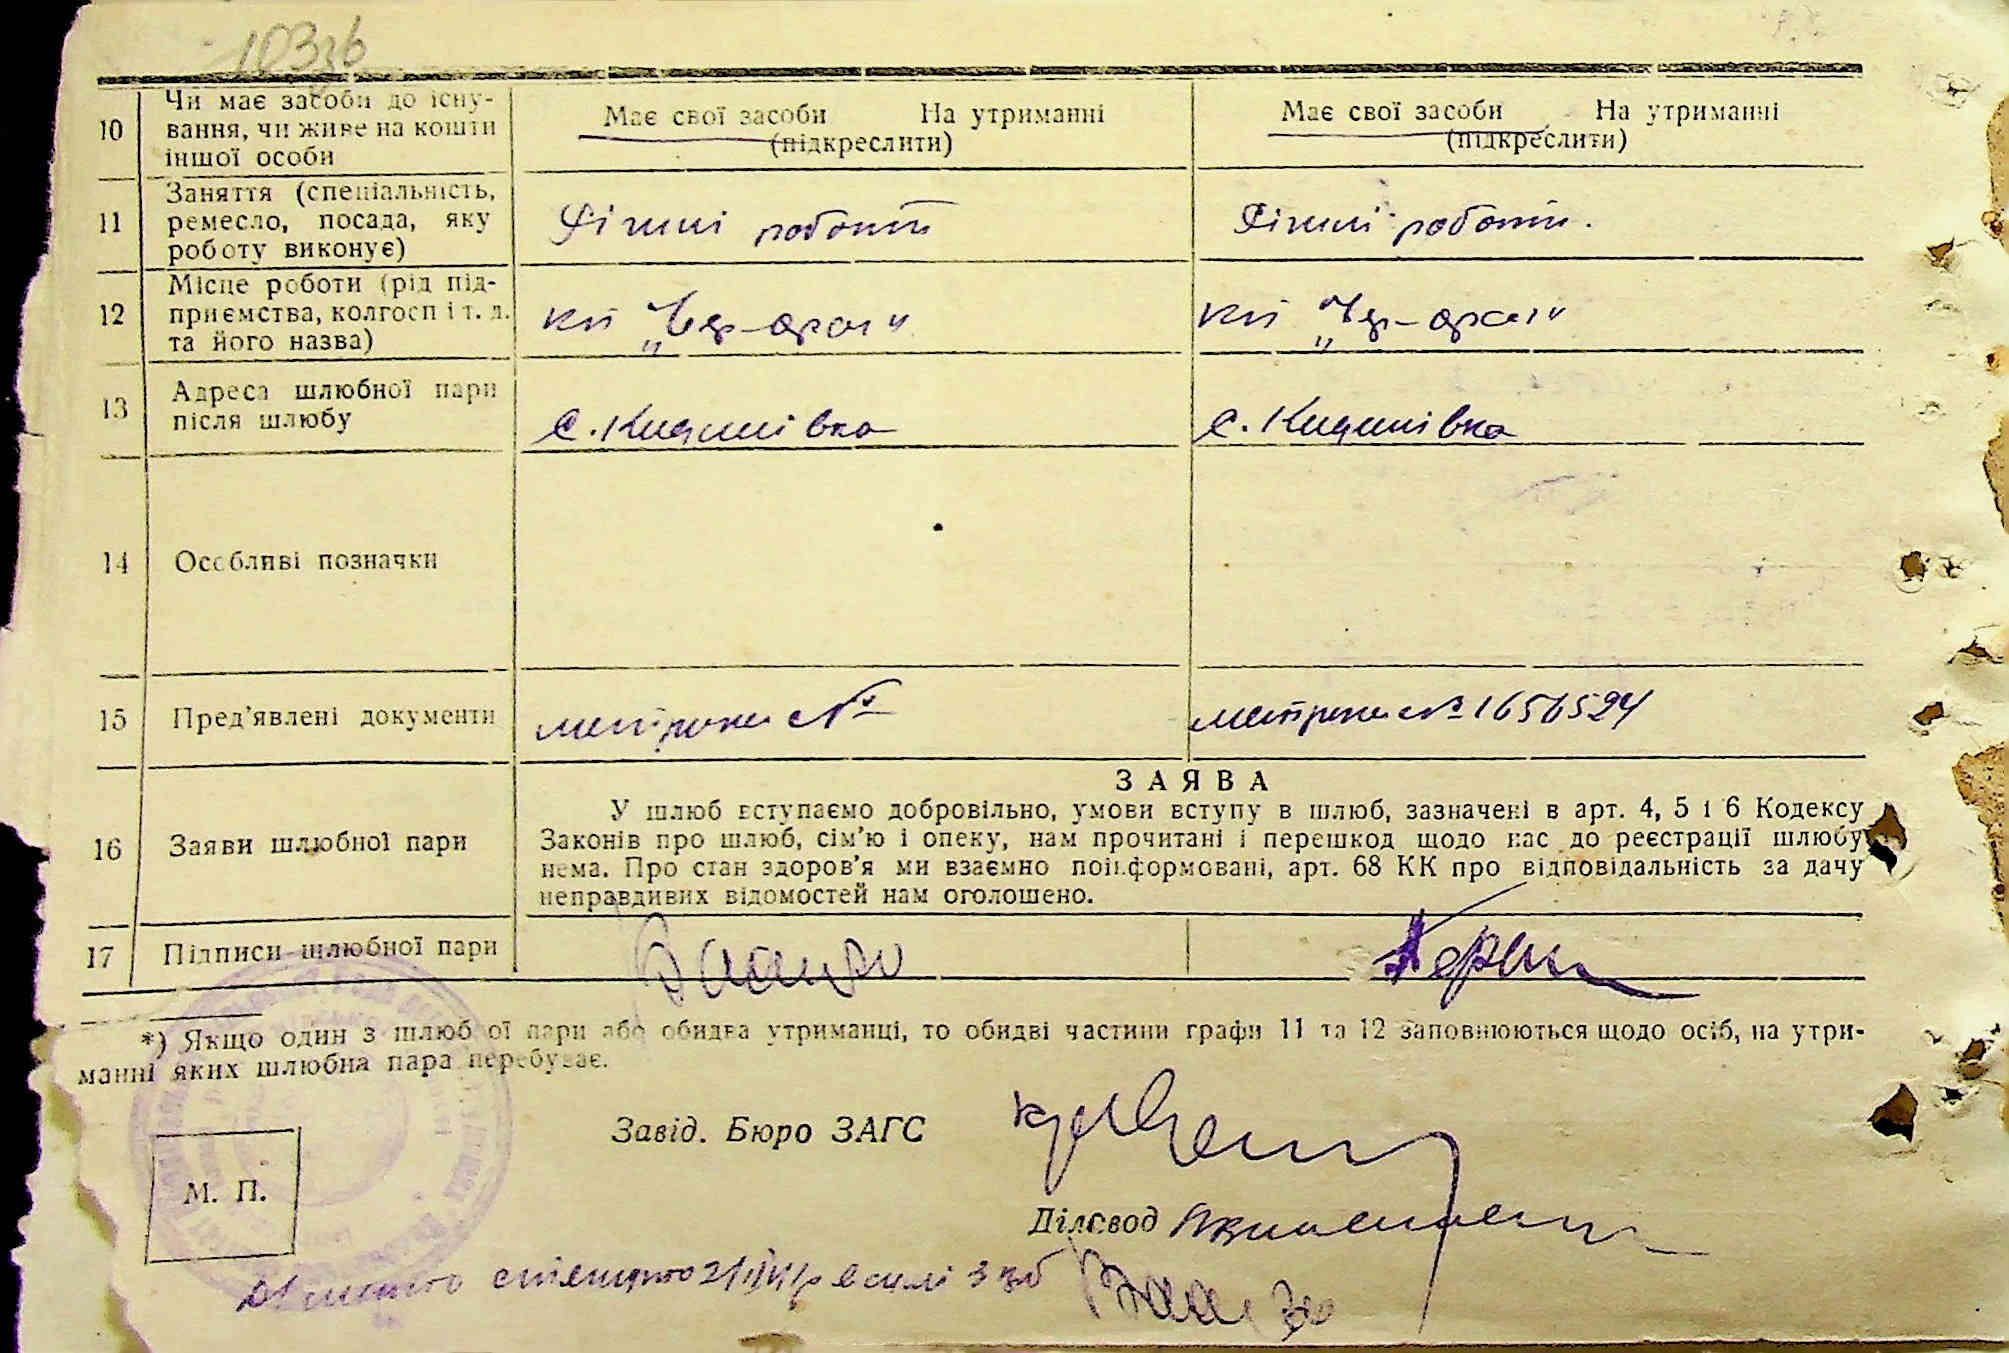 103зв
10 Чи має засоби до існу- Має свої засоби На утриманні Має свої засоби На утриманні
вання, чи живе на кошти (підкреслити) (підкреслити)
іншої особи
11 Заняття (спеціальність,
ремесло, посада, яку Різниі роботи Різниі роботи.
роботу виконує)
12 Місце роботи (рід під-
приємства, колгосп і т. д. кп кп
та його назва)
13 Адреса шлюбної пари
після шлюбу с. Кидишівка с. Кидишівка
14 Особливі позначки
15 Пред'явлені документи метрика № метрика № 1656524
ЗАЯВА
У шлюб вступаємо добровільно, умови вступу в шлюб, зазначені в арт. 4, 5 і 6 Кодексу
16 Заяви шлюбної пари Законів про шлюб, сім'ю і опеку, нам прочитані і перешкод щодо нас до реєстрації шлюбу
нема. Про стан здоров'я ми взаємно поінформовані, арт. 68 КК про відповідальність за дачу
неправдивих відомостей нам оголошено.
17 Підписи шлюбної пари
*) Якщо один з шлюбної пари або обидва утриманці, то обидві частини графи 11 та 12 заповнюються щодо осіб, на утри-
манні яких шлюбна пара перебуває.
Завід. Бюро ЗАГС
М. П.
Діловод